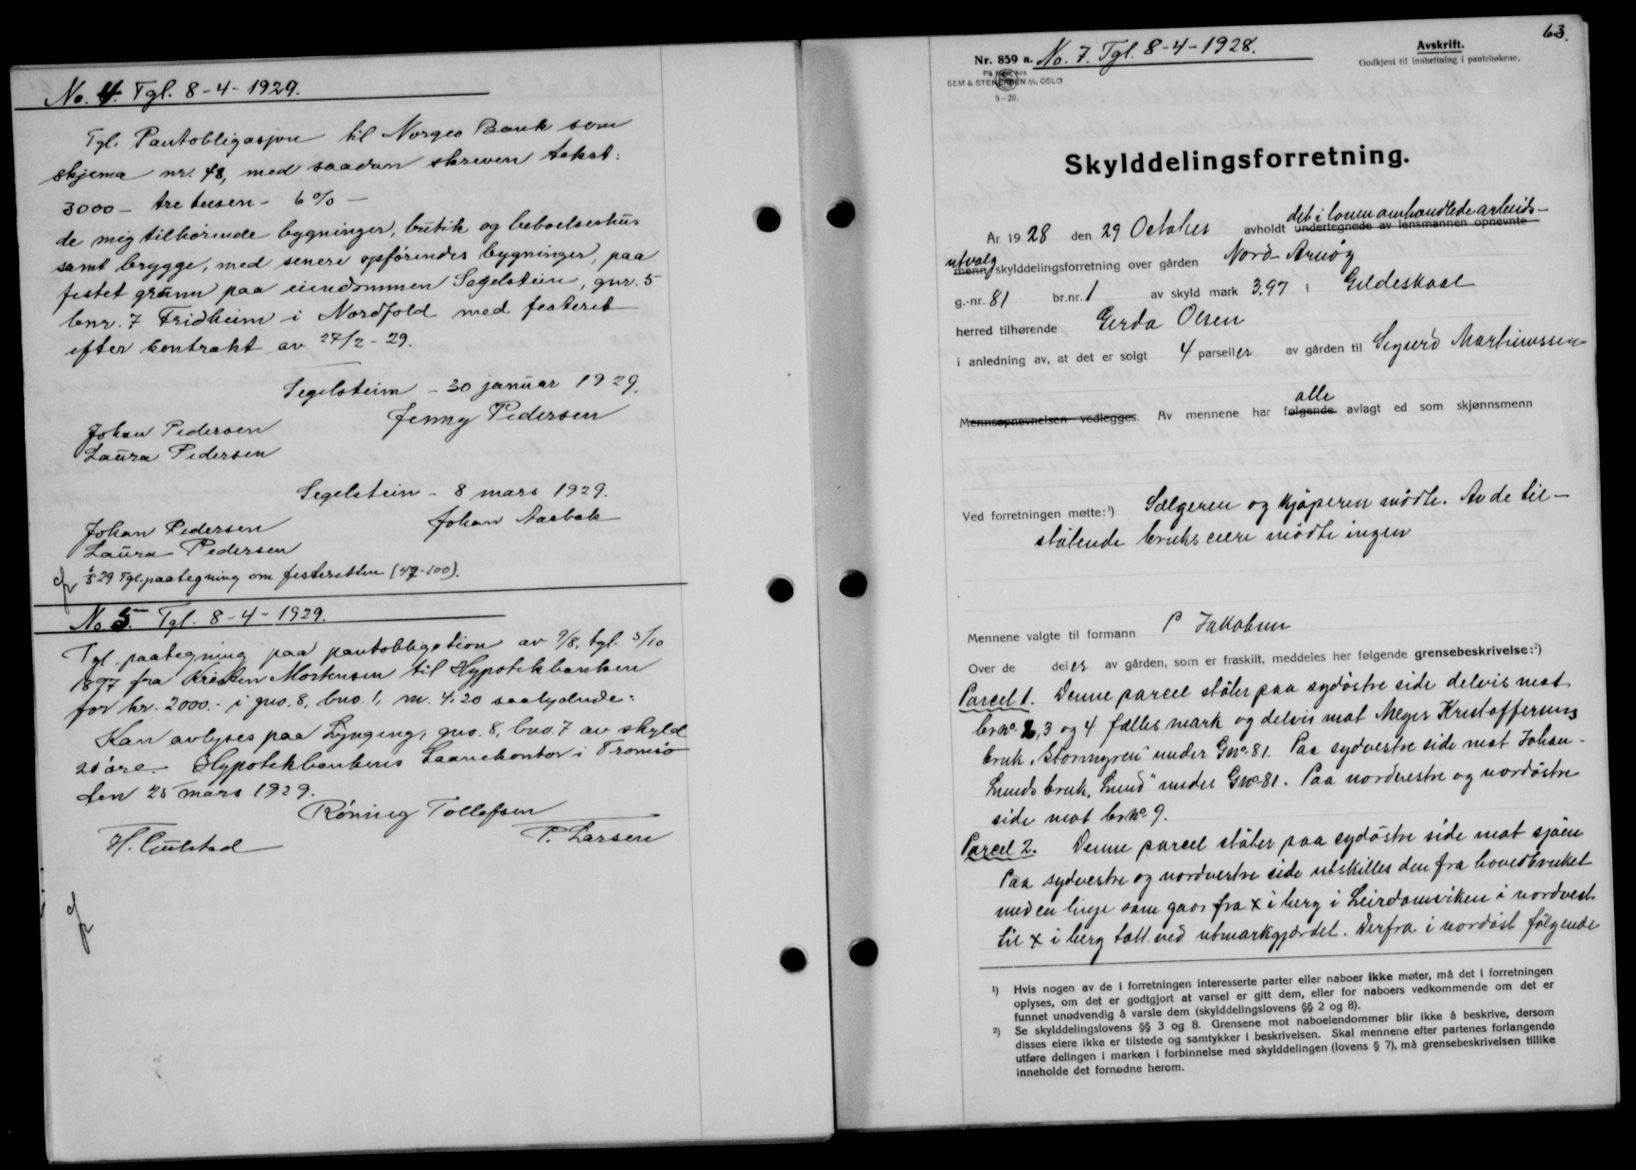 No. 4. Tgl. 8-4-1929.
Tgl. Pantobligasjon til Norges Bank som
skjema nr. 48, med saadan skreven tekst:
3000 - tre tusen - 6% -
de mig tilhörende bygninger, butik og beboelseshus
samt brygge, med senere opförendes bygninger, paa
festet grunn paa eiendommen Segelstein, gnr. 5
bnr. 7 Fridheim i Nordfold med festeret
efter kontrakt av 27/2-29.
Segelstein - 30 januar 1929.
Jenny Pedersen
Johan Pedersen
Laura Pedersen
Segelstein - 8 mars 1929.
Johan Pedersen Johan Aasbak
Laura Pedersen
29 Tgl. paategning om festeretten (47-100).
No 5. Tgl. 8-4-1929.
Tgl. paategning paa pantobligation av 9/8, tgl. 5/10
1897 fra Mortensen til Hypotekbanken
for kr. 2000.- i gno. 8, bno. 1, m. 4,20 saalydende:
Kan avlyses paa Lyngeng, gno. 8, bno. 7 av skyld
20 øre. Hypotekbankens Laanekontor i Tromsö
den 25 mars 1929.
Röning Tollefsen
H. Gulstad P. Larsen
63.
Nr. 859 a. No. 7. Tgl. 8-4-1928.
Avskrift.
Godkjent til innheftning i pantebøkene.
SEM & STENERSEN A/S, OSLO
5-28.
Skylddelingsforretning.
det i loven omhandlede arbeids-
År 1928 den 29 October avholdt undertegnede av lensmannen opnevnte
utvalg
menn skylddelingsforretning over gården Nord-Arnöy
g.-nr. 81 br.nr. 1 av skyld mark 3.97 i Gildeskaal
herred tilhørende Gerda Olsen
i anledning av, at det er solgt 4 parseller av gården til Sigurd Martinussen
alle
Mennsopnevnelsen vedlegges. Av mennene har følgende avlagt ed som skjønnsmenn
Ved forretningen møtte:¹) Sælgeren og kjöperen mödte. Av de til-
stötende bruks eiere mödte ingen
Mennene valgte til formann P Jakobsen
Over de deler av gården, som er fraskilt, meddeles her følgende grensebeskrivelse:²)
Parcel 1. Denne parcel stöter paa sydöstre side delvis mot
brno 2, 3 og 4 fælles mark og delvis mot Meyer Kristoffersens
bruk „Stormyren" under Gno 81. Paa sydvestre side mot Johan
Lunds bruk „Lund" under Gno 81. Paa nordvestre og nordöstre
side mot brno 9.
Parcel 2. Denne parcel stöter paa sydöstre side mot sjöen
Paa sydvestre og nordvestre side utskilles den fra hovedbruket
med en linje som gaar fra X i berg i Leirdamsviken i nordvest
til X i berg tatt ved utmarkgjærdet. Derfra i nordöst fölgende
¹) Hvis nogen av de i forretningen interesserte parter eller naboer ikke møter, må det i forretningen
oplyses, om det er godtgjort at varsel er gitt dem, eller for naboers vedkommende om det er
funnet unødvendig å varsle dem (skylddelingslovens §§ 2 og 8).
²) Se skylddelingslovens §§ 3 og 8. Grensene mot naboeiendommer blir ikke å beskrive, dersom
disses eiere ikke er tilstede og samtykker i beskrivelsen. Skal mennene efter partenes forlangende
utføre delingen i marken i forbinnelse med skylddelingen (lovens § 7), må grensebeskrivelsen tillike
inneholde det fornødne herom.